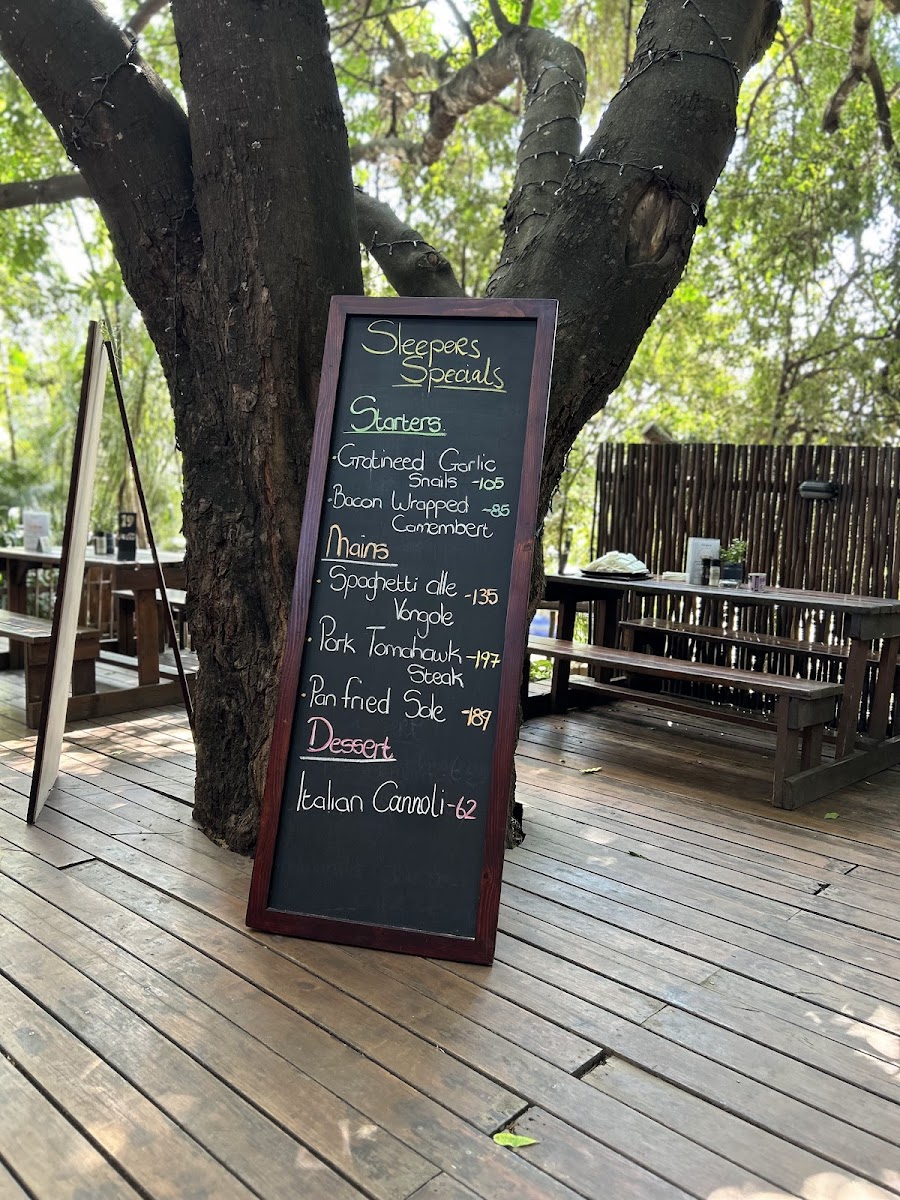 Sleepers
Specials
Starters
·Gratineed Garlic
Snails -105
·Bacon Wrapped -85
Camembert
Mains
·Spaghetti alle -135
Vongole
·Pork Tomahawk -197
Steak
·Pan fried Sole -189
Dessert
Italian Cannoli -62